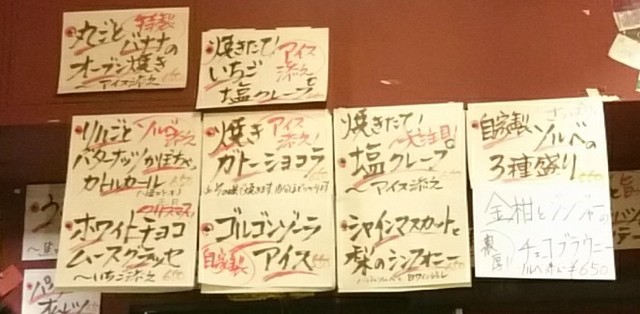 丸ごと 特製
バナナの
オーブン焼き
〜アイス添え
焼きたて! アイス
いちご 添え
塩クレープ
りんごと ソルベ添え
バターナッツかぼちゃ
カトルカール
焼き アイス添え!
ガトーショコラ
焼きたて!
大注目!
塩クレープ
〜アイス添え
自家製 ソルベの
3種盛り
ホワイトチョコ
ムースグラッセ
〜いちご添え
ゴルゴンゾーラ
自家製 アイス
シャインマスカットと
梨のシンフォニー
金柑とジンジャーの
チョコブラウニー
ソルベ添え ¥650